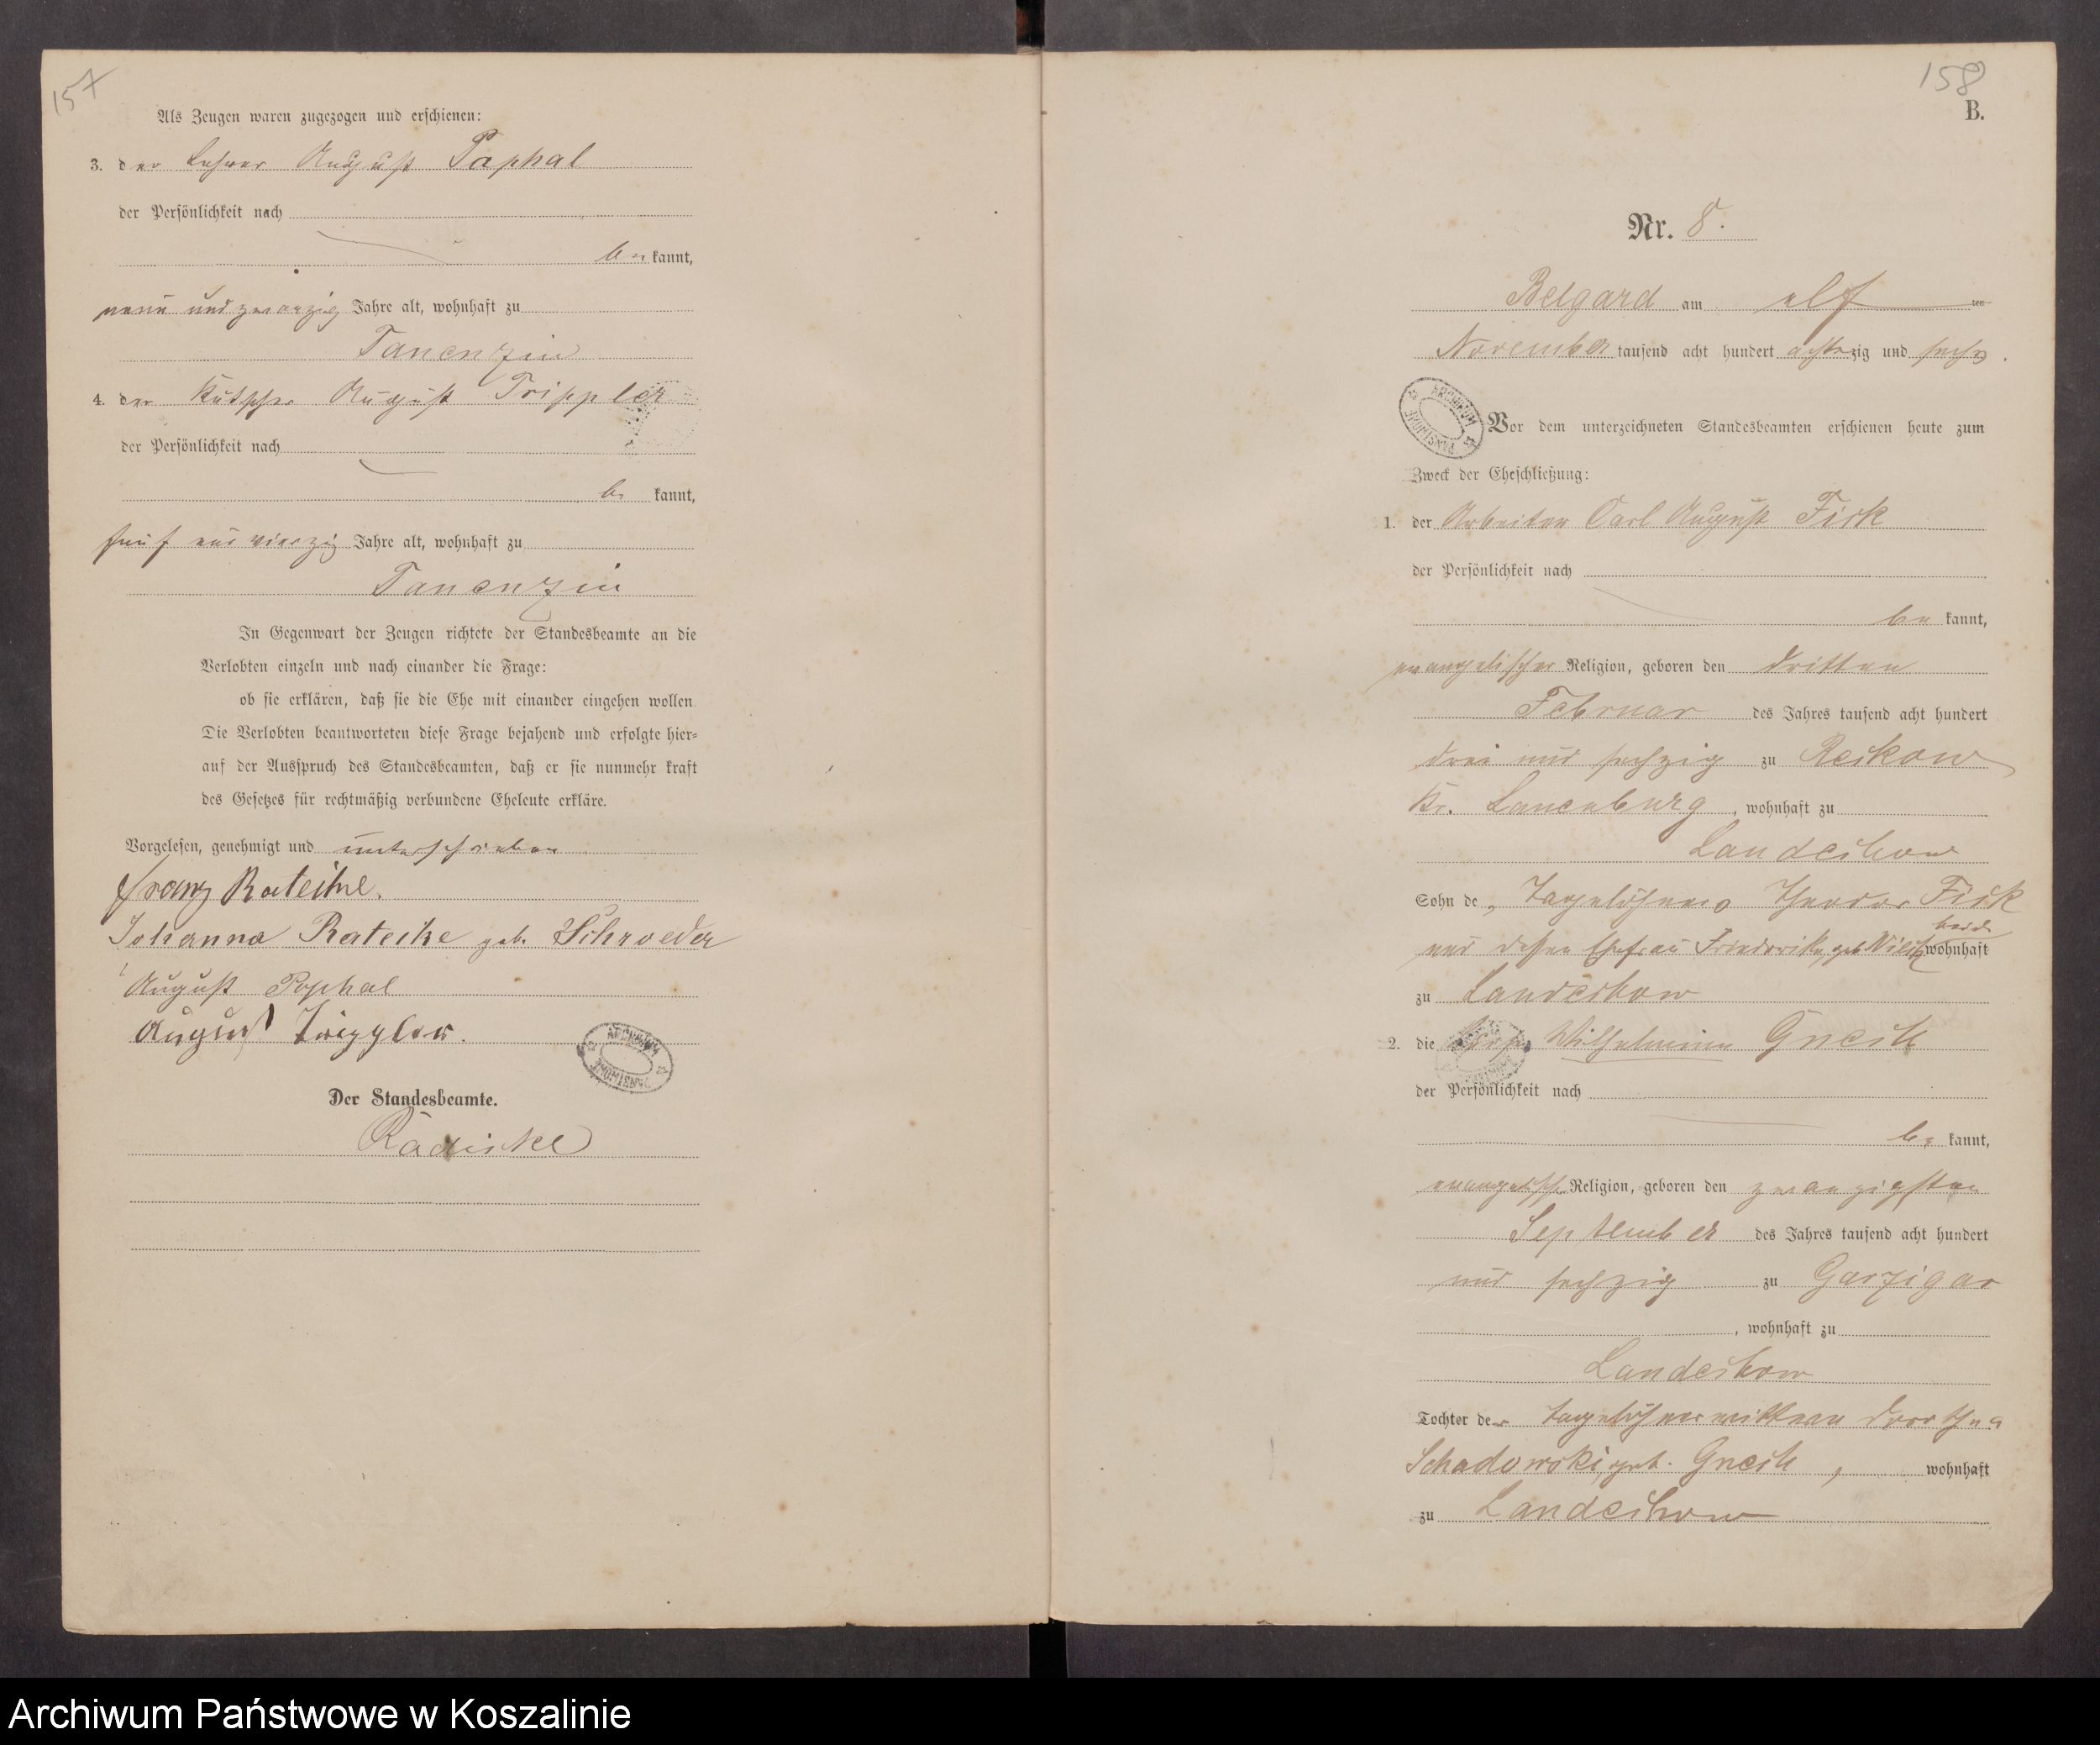 157
Als Zeugen waren zugezogen und erschienen:
3. der Lehrer August Pophal
der Persönlichkeit nach
be kannt,
neun und zwanzig Jahre alt, wohnhaft zu
Tauenzin
4. der Kutscher August Trippler
der Persönlichkeit nach
be kannt,
fünf und vierzig Jahre alt, wohnhaft zu
Tauenzin
In Gegenwart der Zeugen richtete der Standesbeamte an die
Verlobten einzeln und nach einander die Frage:
ob sie erklären, daß sie die Ehe mit einander eingehen wollen.
Die Verlobten beantworteten diese Frage bejahend und erfolgte hier-
auf der Ausspruch des Standesbeamten, daß er sie nunmehr kraft
des Gesetzes für rechtmäßig verbundene Eheleute erkläre.
Vorgelesen, genehmigt und unterschrieben
Franz Rateike.
Johanna Rateike geb. Schroeder
August Pophal
August Trippler.
ARCHIWUM PAŃSTWOWE
Der Standesbeamte.
158
B.
Nr. 8.
Belgard am elf ten
November tausend acht hundert achtzig und sechs.
ARCHIWUM PAŃSTWOWE
Vor dem unterzeichneten Standesbeamten erschienen heute zum
Zweck der Eheschließung:
1. der Arbeiter Carl August Fick
der Persönlichkeit nach
be kannt,
evangelischer Religion, geboren den dritten
Februar des Jahres tausend acht hundert
drei und sechzig zu Reckow
Kr. Lauenburg, wohnhaft zu
Landechow
Sohn des Tagelöhners Theodor Fick
und dessen Ehefrau Friederike, geb. beide wohnhaft
zu Landechow
2. die Wilhelmine Gnech
der Persönlichkeit nach
be kannt,
evangelischer Religion, geboren den zwanzigsten
September des Jahres tausend acht hundert
und sechzig zu Garzigar
, wohnhaft zu
Landechow
Tochter der Tagelöhnerwittwe Dorothea
Schadowski, geb. Gnech, wohnhaft
zu Landechow
Archiwum Państwowe w Koszalinie